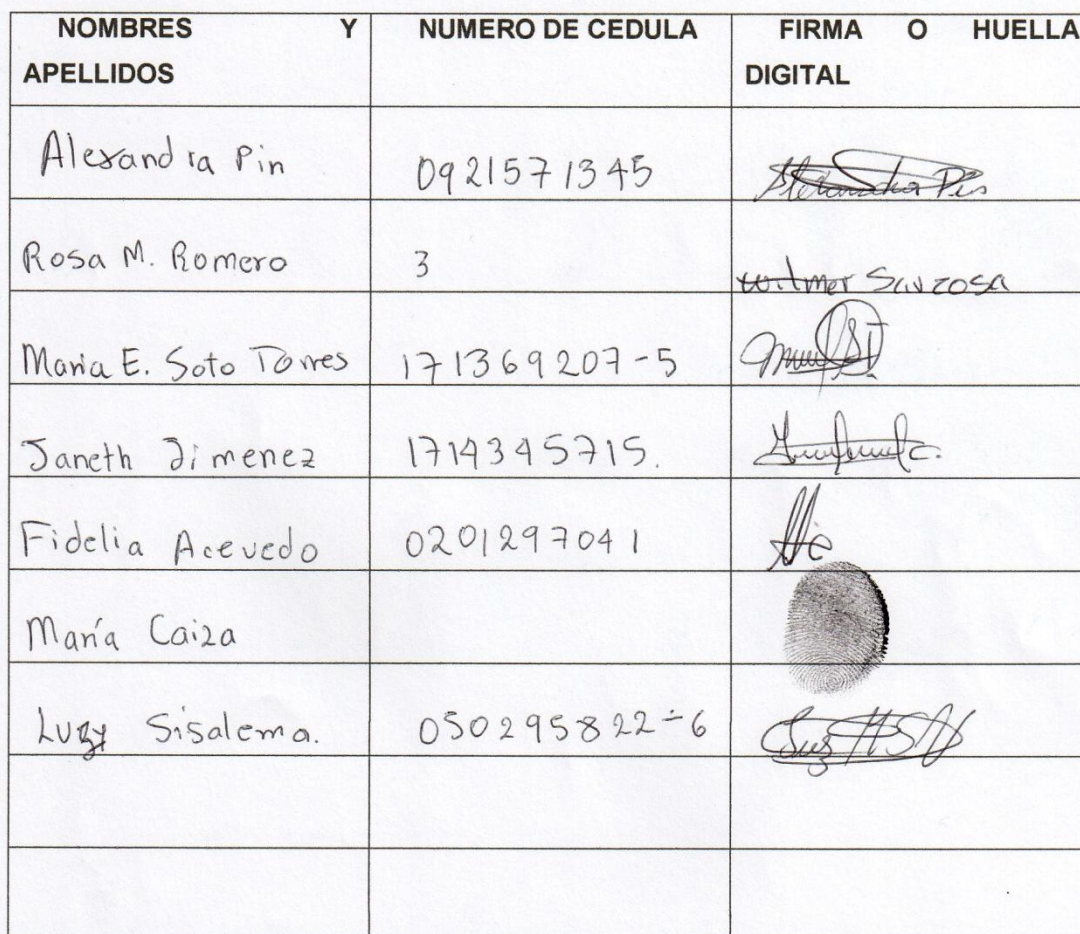 NOMBRES Y APELLIDOS NUMERO DE CEDULA FIRMA O HUELLA DIGITAL
Alexandra Pin 0921571345 Alexandra Pin
Rosa M. Romero 3 Wilmer Sarzosa
Maria E. Soto Torres 171369207-5
Janeth Jimenez 1714345715.
Fidelia Acevedo 0201297041
María Caiza
Luzy Sisalema. 050295822-6